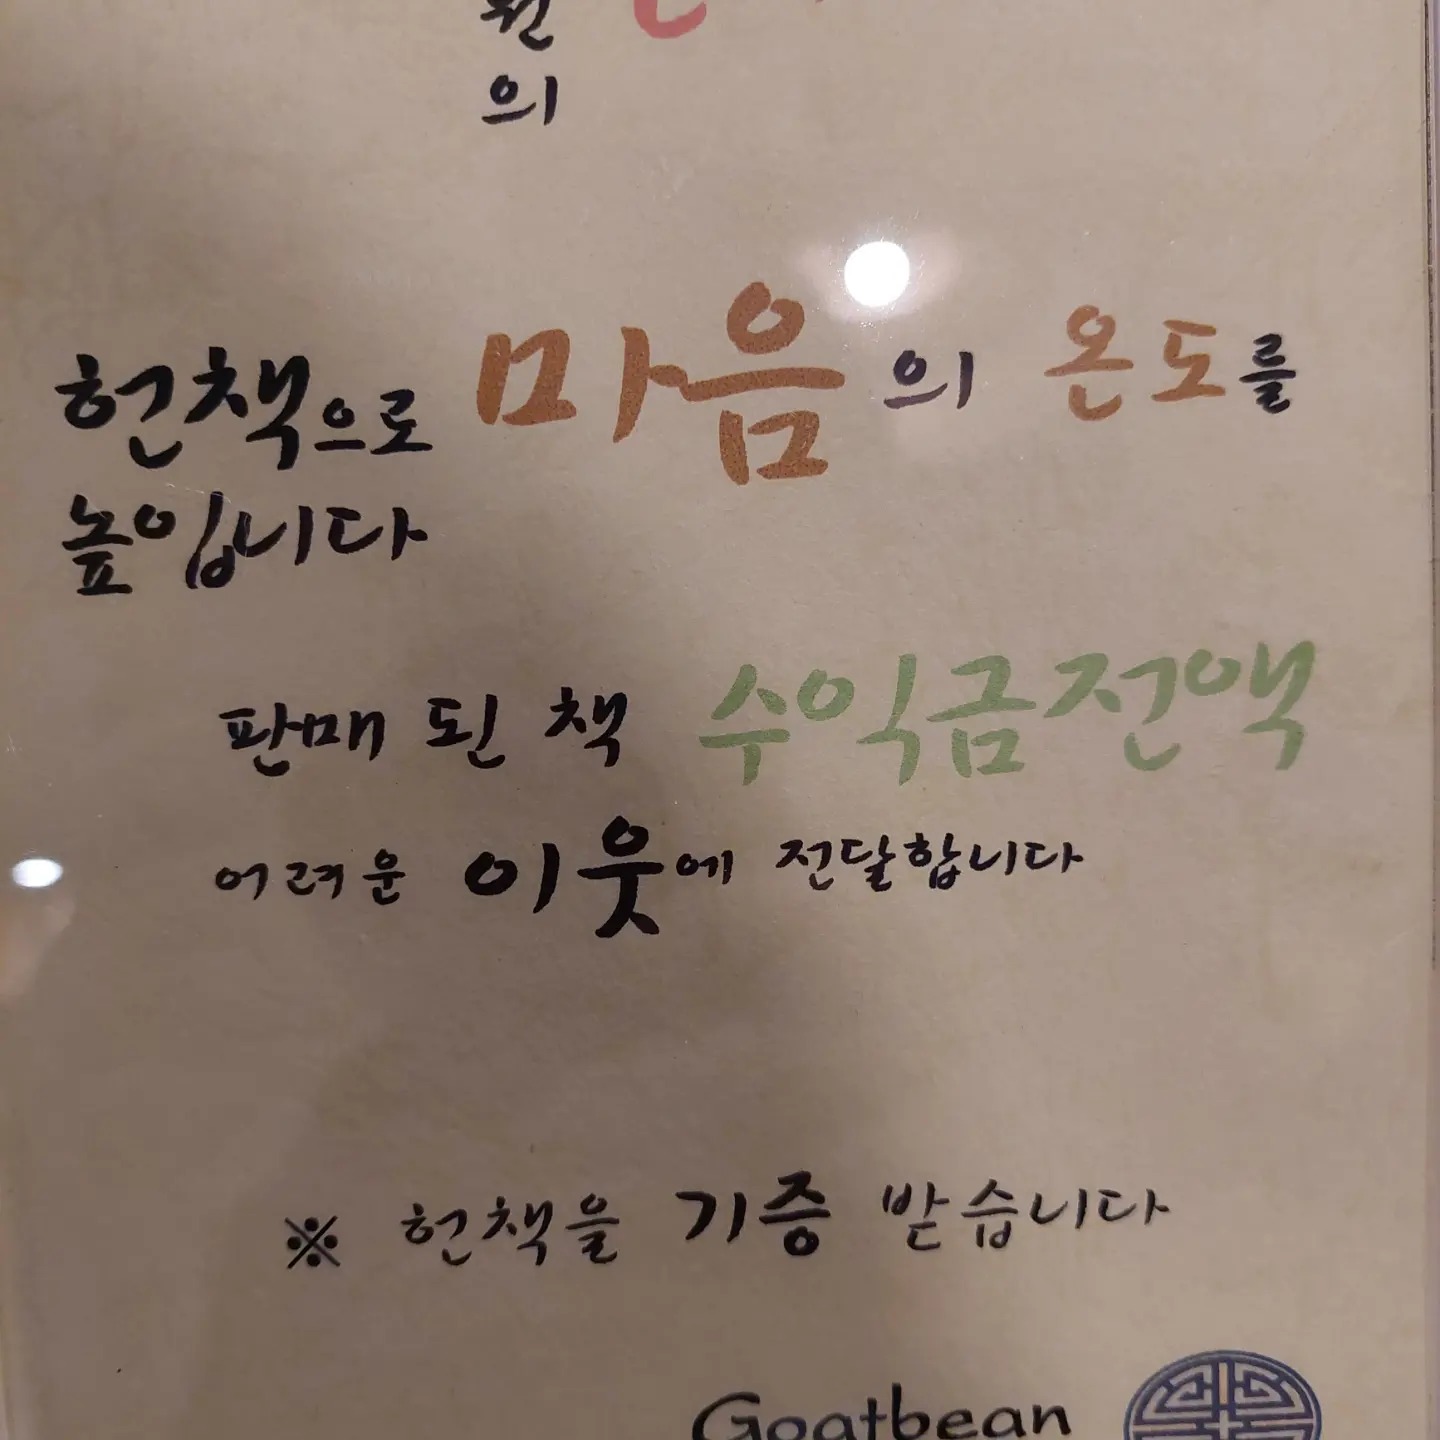 원
의
헌책으로 마음의 온도를
높입니다
판매 된 책 수익금전액
어려운 이웃에 전달합니다
※ 헌책을 기증 받습니다
Goatbean